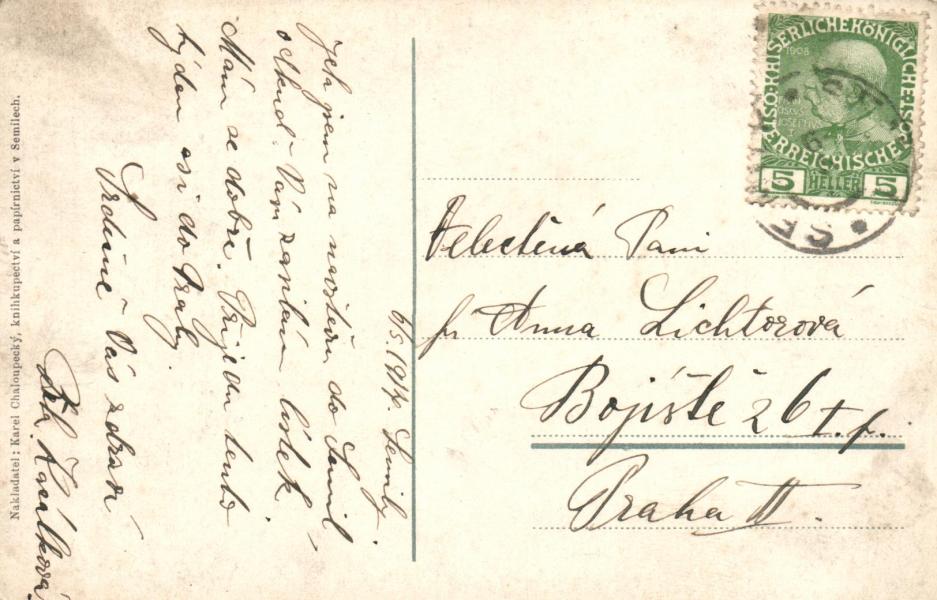 6/5. 1914. Semily.
Jela jsem na návštěvu do Semil
odkud Vám zasílám lístek.
Mám se dobře. Přijedu tento
týden asi do Prahy.
Srdečně Vás zdraví
Velectěná Paní
pí Anna Lichtorová
Bojiště 26 I. p.
Praha II.
KAISERLICHE KÖNIGLICHE ÖSTERREICHISCHE
1908
5 HELLER 5
Nakladatel: Karel Chaloupecký, knihkupectví a papírnictví v Semilech.